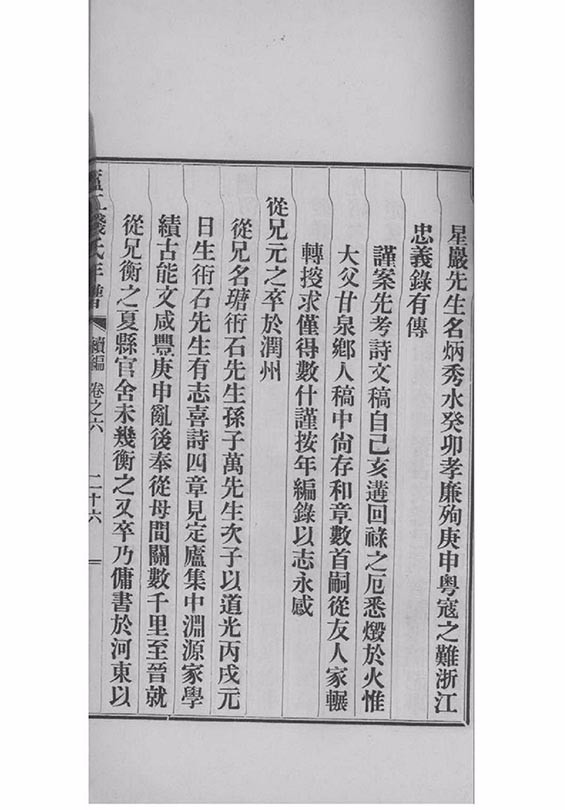 星巖先生名炳秀水癸卯孝廉殉庚申粤寇之難浙江
忠義錄有傳
謹案先考詩文稿自己亥遘回祿之厄悉燬於火惟
大父甘泉鄉人稿中尙存和章數首嗣從友人家輾
轉搜求僅得數什謹按年編錄以志永感
從兄元之卒於潤州
從兄名瑭術石先生孫子萬先生次子以道光丙戌元
日生術石先生有志喜詩四章見定廬集中淵源家學
績古能文咸豐庚申亂後奉從母間關數千里至晉就
從兄衡之夏縣官舍未幾衡之又卒乃傭書於河東以
廬江錢氏年譜 續編 卷之六 二十六